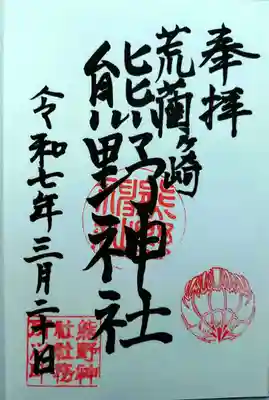 奉拝
荒藺ヶ崎
熊野神社
令和七年三月二十日
熊野神
社社務